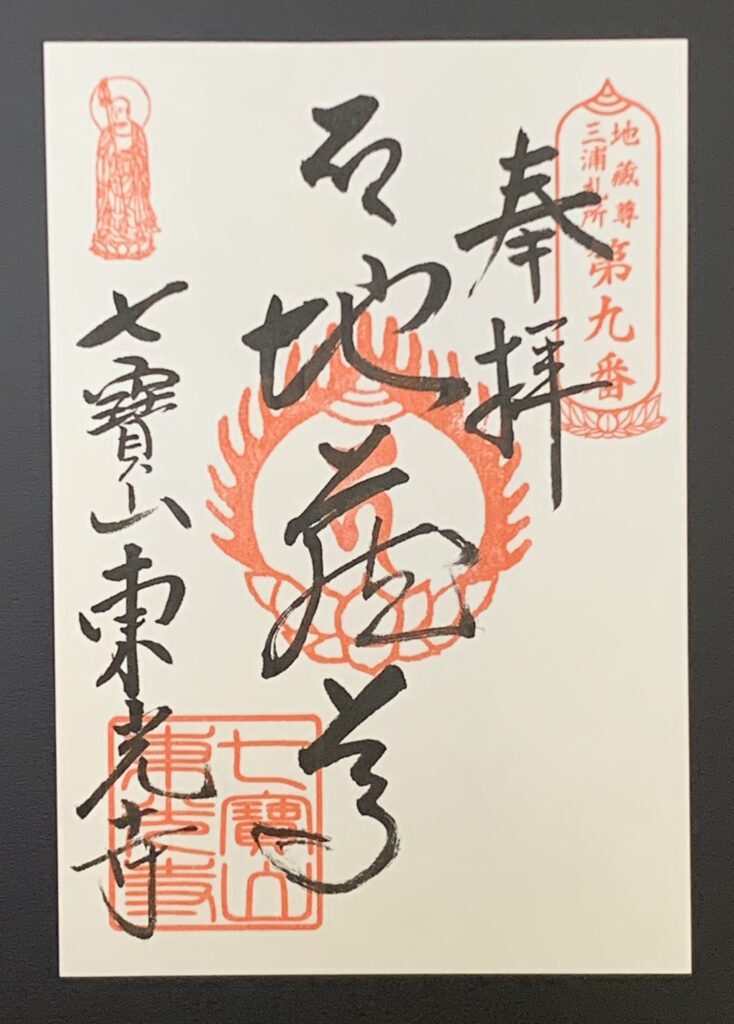 地蔵尊
三浦札所
第九番
奉拝
石地蔵尊
七寶山東光寺
七寶山
東光寺